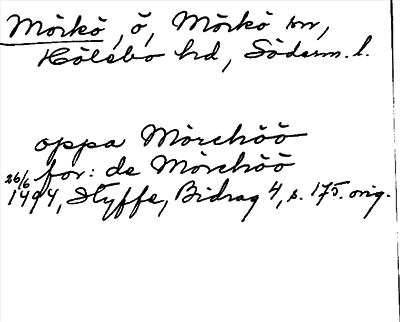 Mörkö, ö, Mörkö sn,
Hölebo hd, Söderm. l.
oppa Mörchöö
for: de Mörchöö
26/6 1494, Styffe, Bidrag 4, s. 175. orig.